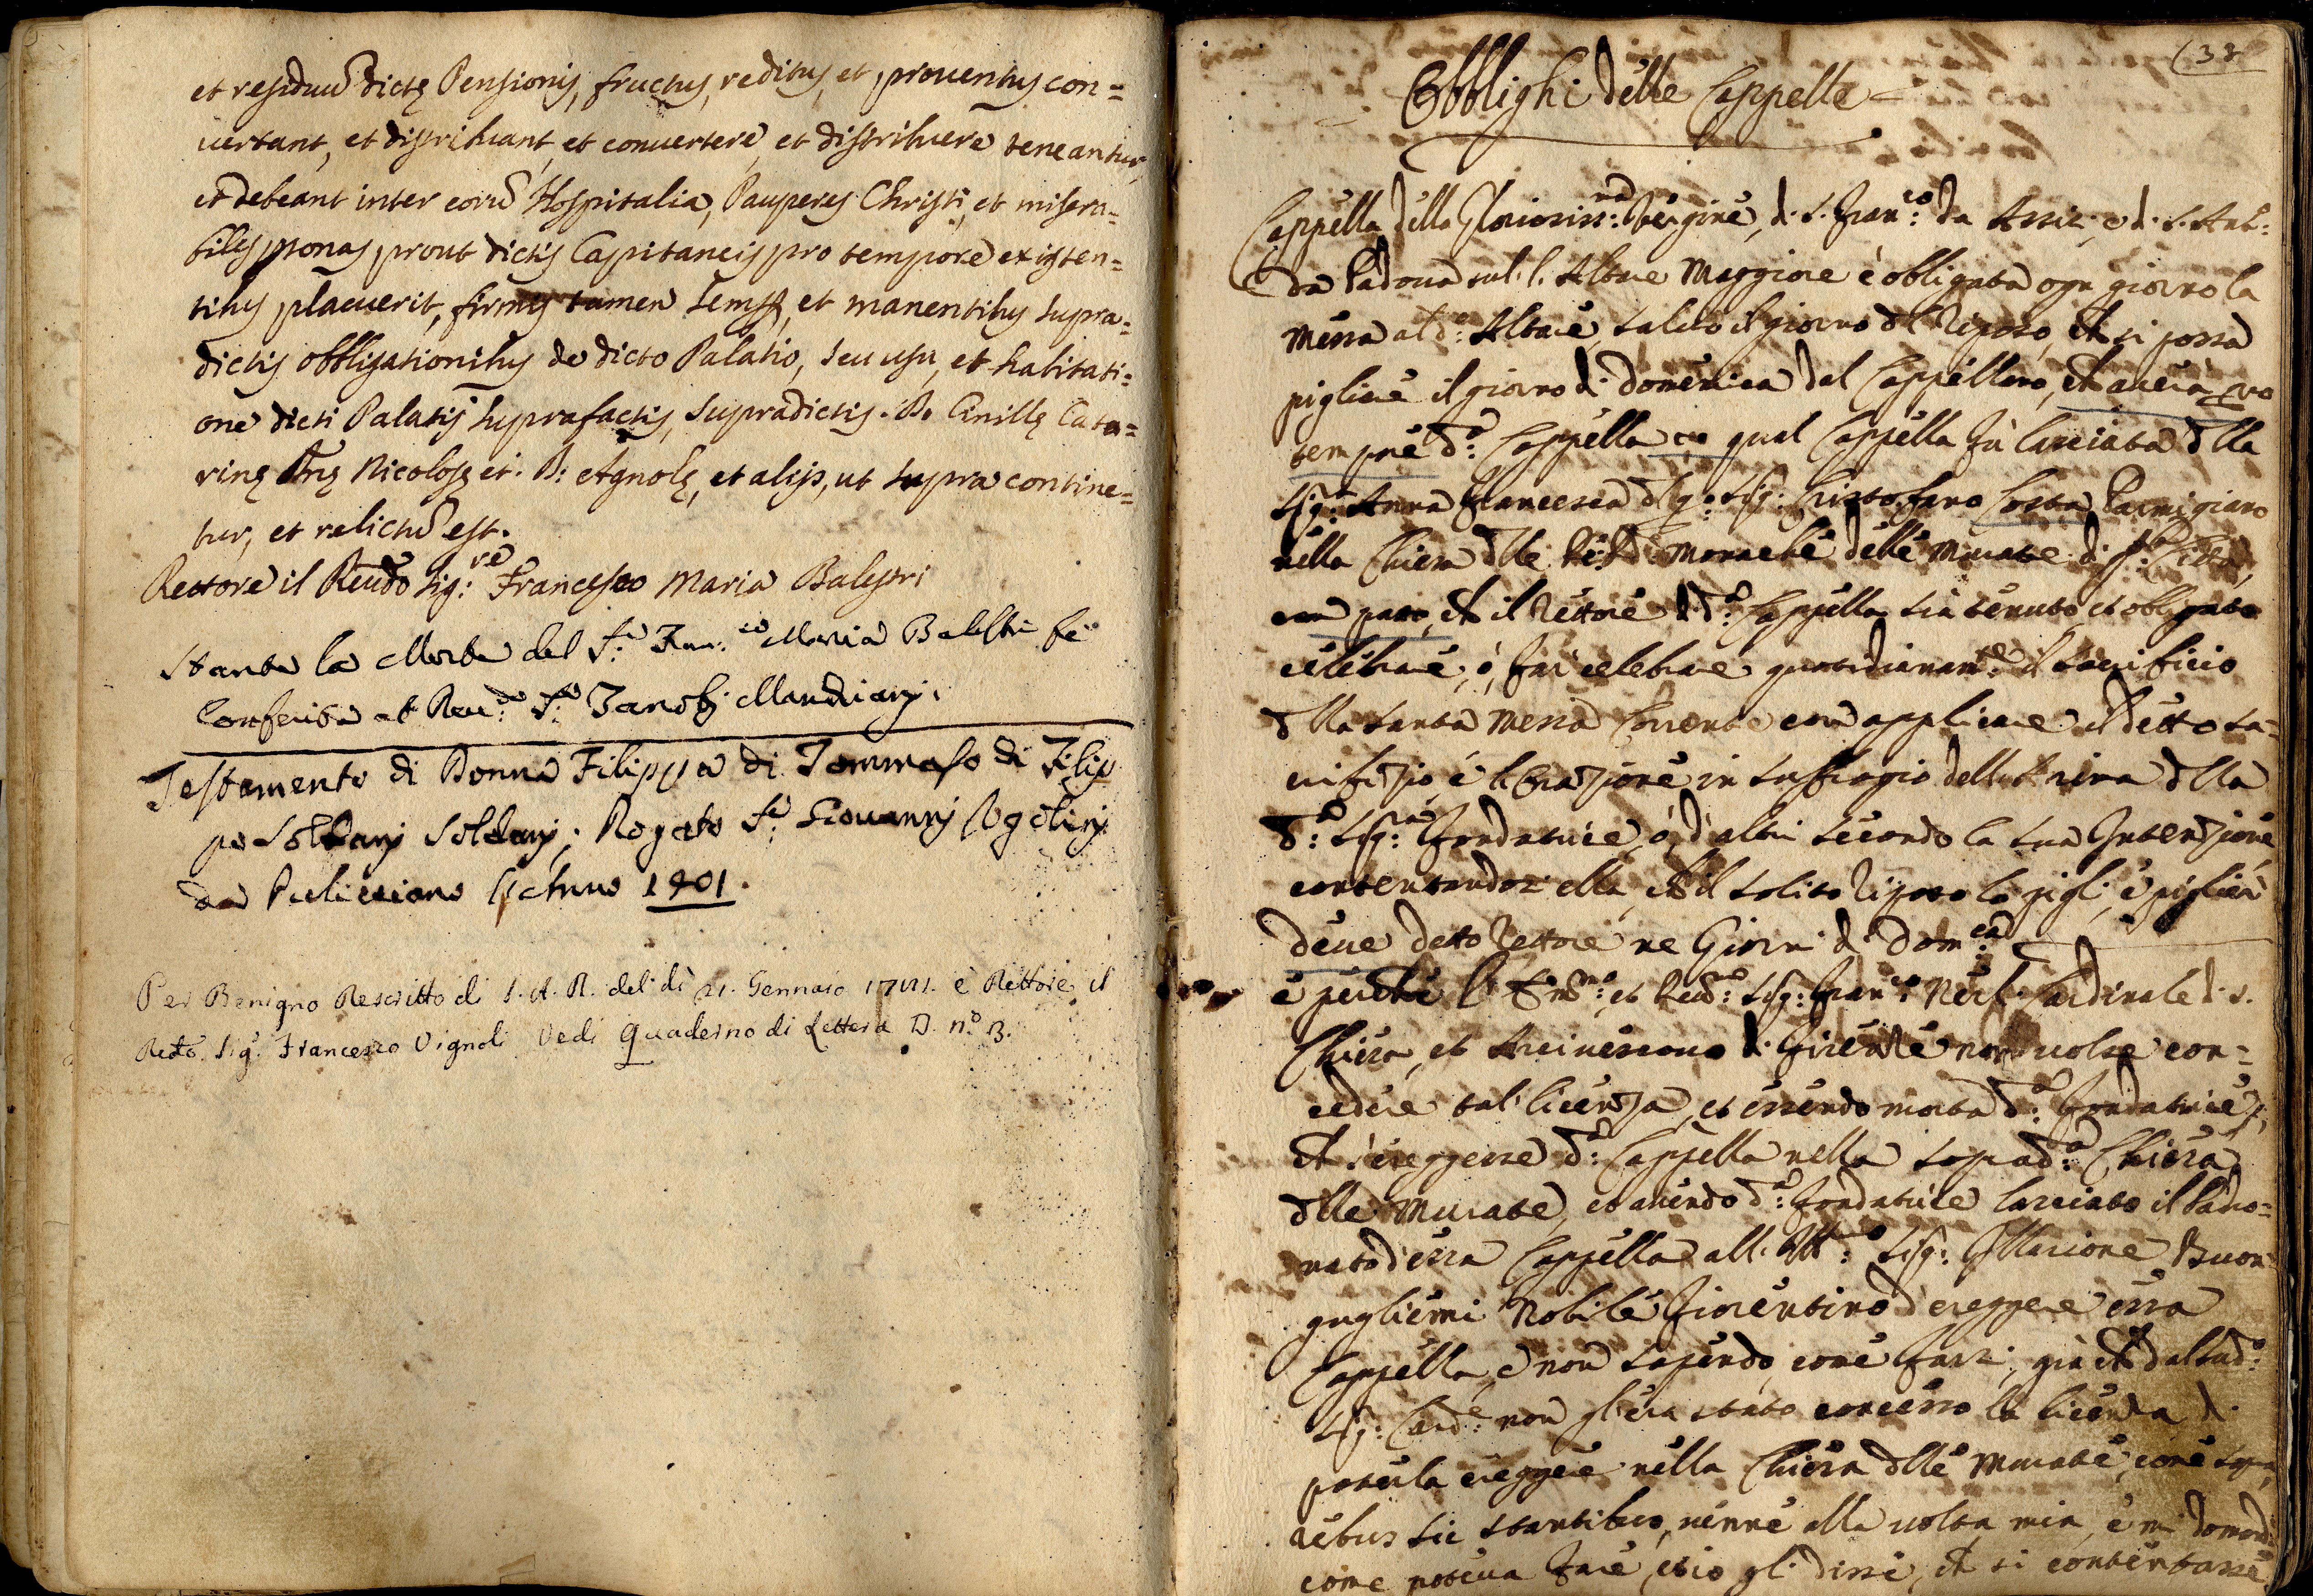 et residuũ dictę Pensionis, fructus, reditus, et prouentus con=
uertant, et distribuant, et conuertere, et distribuere teneantur,
et debeant inter eorũ Hospitalia, Pauperes Christi, et misera=
biles psonas, prout dictis Capitaneis pro tempore existen=
tibus placuerit, firmis tamen semp, et manentibus supra=
dictis obbligationibus de dicto Palatio, seu usu, et habitati=
one dicti Palatij suprafactis, supradictis. D. Cinillę Cata=
rinę Dnę Nicolosę et. D: Agnolę, et alijs, ut supra contine=
tur, et relictũ est.
Rettore il Reudo Sig:re Francesco Maria Balestri
Stante la Morte del S:r Fran:co Maria Balestri fù
Conferita al Reu:do S:r Zanobj Mandrianj.
Testamento di Donna Filippa di Tommaso di Filip
po Soldanj Soldanj. Rogato S:r Giouannj Ugolinj
da Puliciano Anno 1401.
Per Benigno Rescritto di S. A. R. del dì 21. Gennaio è Rettore il
Redo. Sig.r Francesco Vignoli Vedi Quaderno di Lettera D. n.o 13.
(32
Obblighi delle Cappelle
Cappella della Gloriosiss:ma Vergine, di S. Fran:co da Assisi, e di S. Ant:
da Padoua sul l. Altare Maggiore è obligata ogni giorno la
Messa al d:o Altare, saluo il giorno del Riposo, che si possa
pigliare il giorno di Domenica dal Cappellano, che auerà pro
tempore d:a Cappella qual Cappella fù lasciata dlla
Sig:ra Anna Francesca dl q: Sig: Cristofano Costa Parmigiano
nella Chiesa dlle Reu:de Monache delle Murate di q:ta Città,
con patto, che il Rettore di d:a Cappella sia tenuto, et obligato
celebrare, ò, far celebrare quotidianam:te il Sacrificio
dlla Santa Messa Corrente con applicare il detto Sa=
crifizio, e librazione in suffragio dell Anima dlla
d:a Sig:ra Fondatrice, ò, d'altri secondo la sua Intenzione
contentandosi ella, che il solito riposo lo pigli, e pigliar
deue detto Rettore ne Giorni di Dom:ca
e perche l' Em:mo et Reu:mo Sig: Fran:co Nerli Cardinale di S.
Chiesa, et Arciuescouo di Firenze non uolse con=
cedere tal licenza, et essendo morta d:a Fondatrice,
che s'ereggesse d:a Cappella nella soprad:a Chiesa
dlle Murate, et auendo d:a Fondatrice lasciato il Padro=
nato d'essa Cappella all' Ill:mo Sig: Illarione Buon
guglielmi Nobile Fiorentino d'ereggere essa
Cappella, e non sapendo, come farsi, già che dal sud:o
Sig: Card:e non gl'era stato concesso la licenza di
poterla ereggere nella Chiesa dlle Murate, come sopra,
rebus sic stantibus, uenne alla uolta mia, e mi domandò
come poteua fare, et io gli dissi, che si contentasse